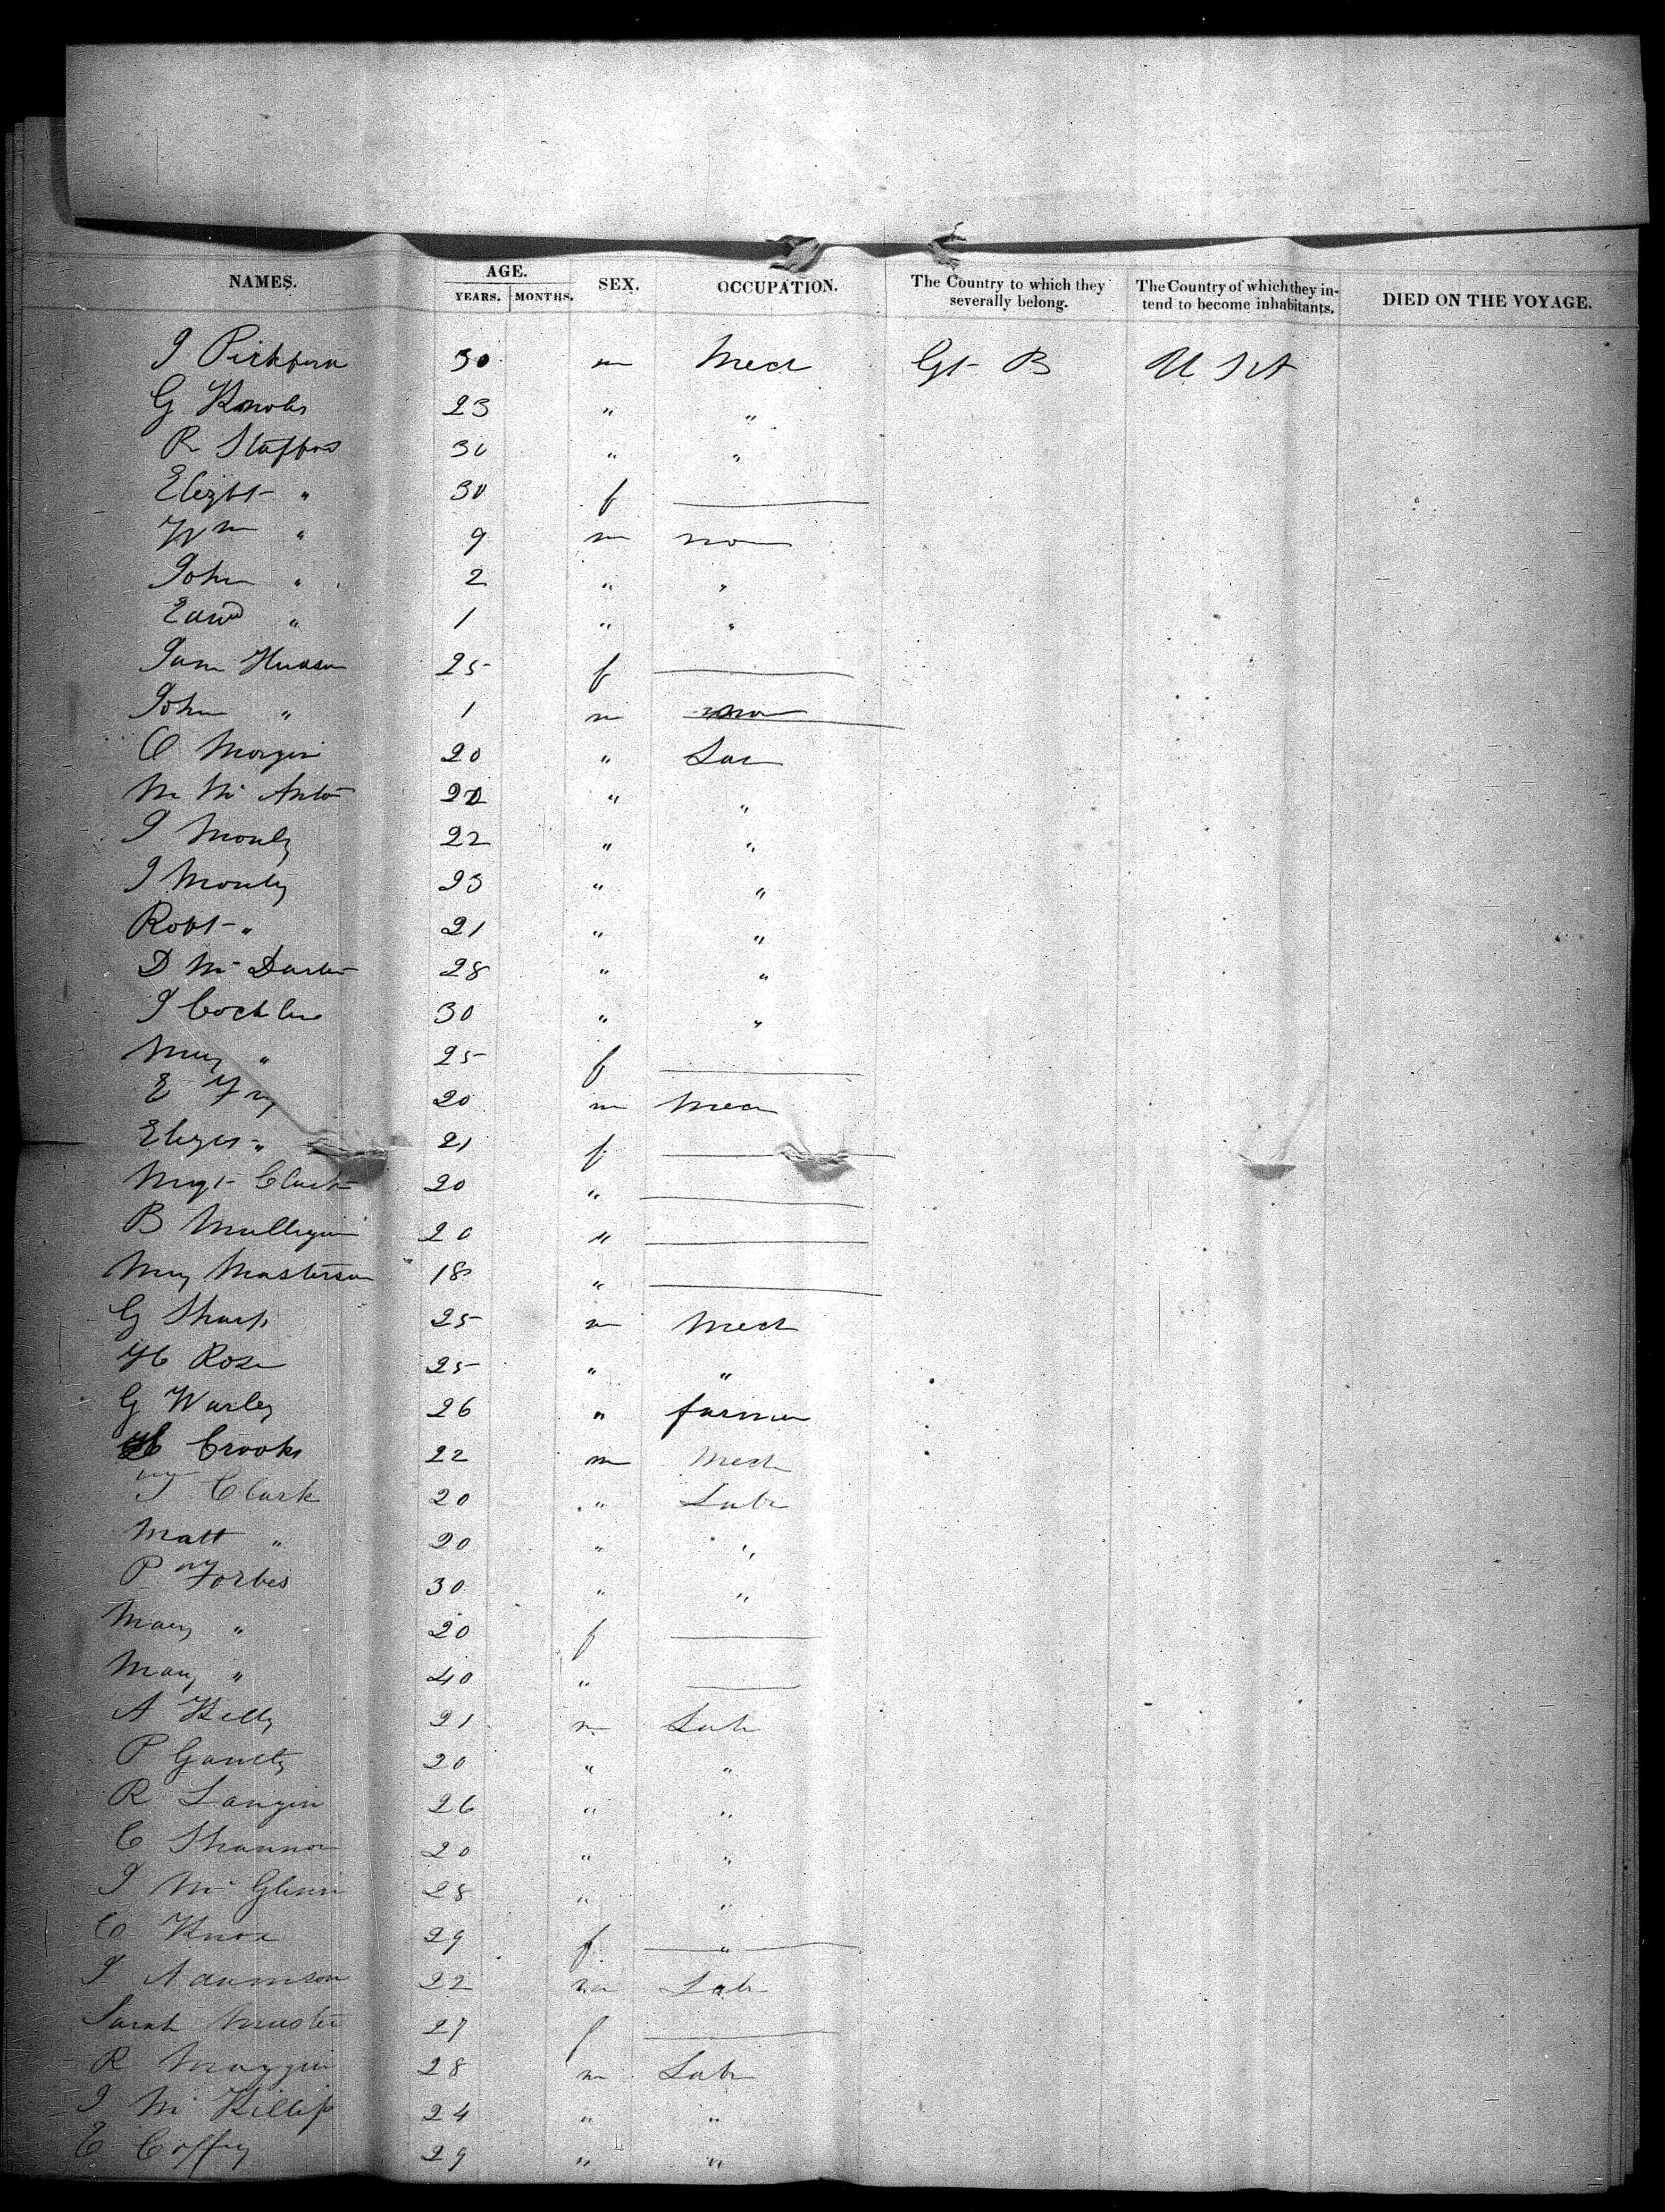 NAMES. AGE. SEX. OCCUPATION. The Country to which they severally belong. The Country of which they intend to become inhabitants. DIED ON THE VOYAGE.
YEARS. MONTHS.
J 30 m Mech Gt B U S A
G Knobs 23 " "
R Stafford 30 " "
Elizbt " 30 f
Wm " 9 m non
John " 2 " "
Edwd " 1 " "
Jane Hudson 25 f
John " 1 m
C Morgin 20 "
M Mc " "
J 22 " "
J 23 " "
Robt " 21 " "
D Mc 28 " "
J 30 " "
Mary " 25 f
E Fry 20 m Mech
" 21 f
Mgt Clark 20 "
B Mulligan 20 "
Mary Masterson 18 "
G Sharp 25 m Mech
H Rose 25 " "
G Warley 26 " farmer
H Crooks 22 m Mech
Clark 20 " Labr
Matt " 20 " "
P Forbes 30 " "
Mary " 20 f
Mary " 40 "
A Kelly 21 m Labr
P 20 " "
R Langin 26 " "
C Shannon 20 " "
J Mc Glinn 28 " "
C Knox 29 f "
J Adamson 22 m Labr
Sarah 27 f
R Maggin 28 m Labr
J Mc Killip 24 " "
E Coffey 29 " "